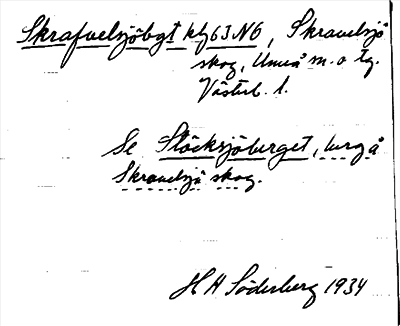 Skrafvelsjöbgt kbl 63 N6, Skravelsjö
skog, Umeå m. o tg.
Västerb. l.
Se Stöcksjöberget, berg å
Skravelsjö skog.
H A Söderberg 1934